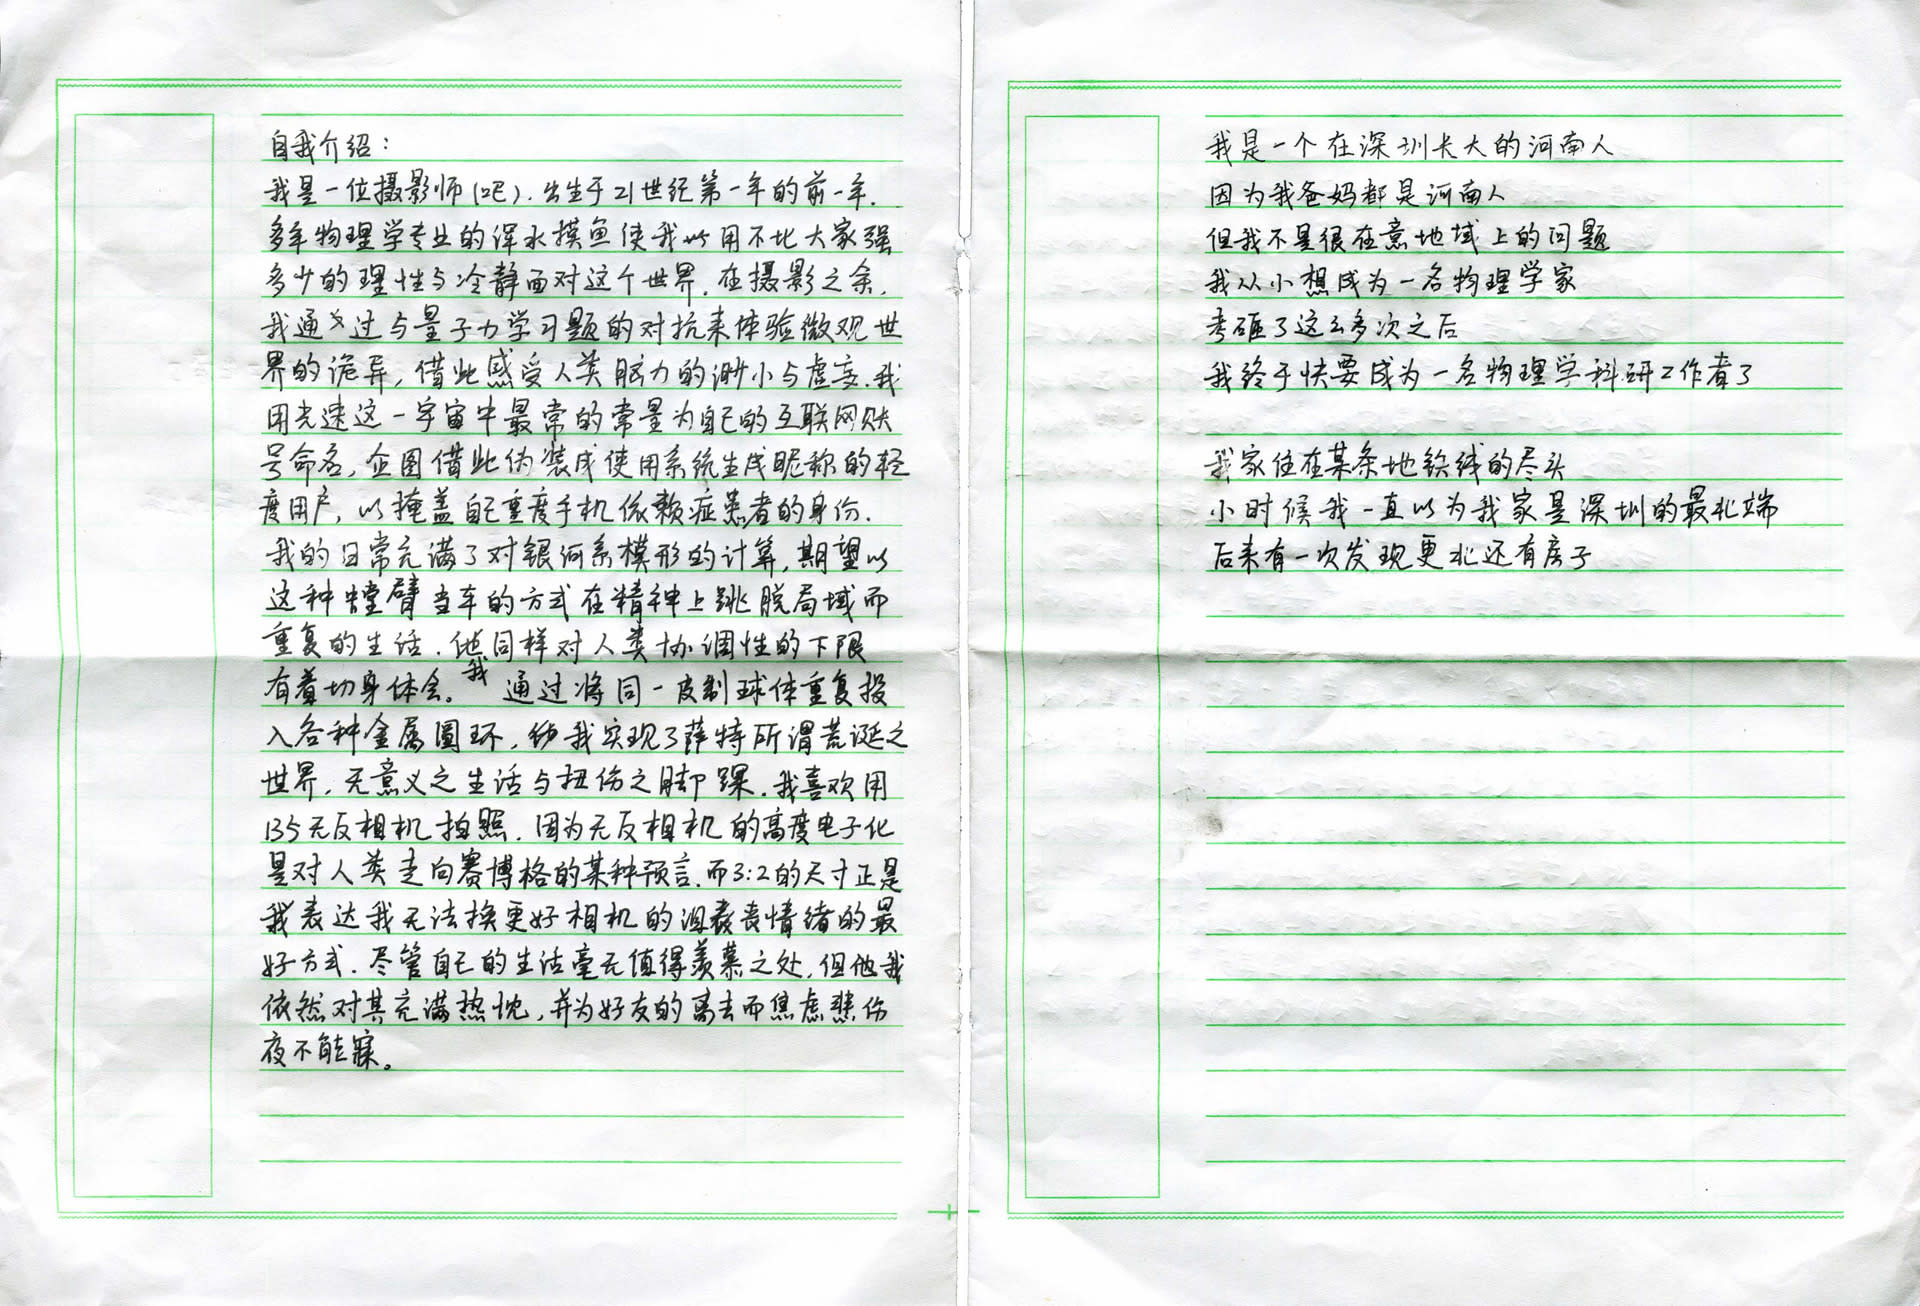 自我介绍：
我是一位摄影师(吧). 出生于21世纪第一年的前一年.
多年物理学专业的浑水摸鱼使我以用不比大家强
多少的理性与冷静面对这个世界. 在摄影之余,
我通过与量子力学习题的对抗来体验微观世
界的诡异, 借此感受人类脑力的渺小与虚妄. 我
用光速这一宇宙中最常的常量为自己的互联网账
号命名, 企图借此伪装成使用系统生成昵称的轻
度用户, 以掩盖自己重度手机依赖症患者的身份.
我的日常充满了对银河系模形的计算, 期望以
这种螳臂当车的方式在精神上跳脱局域而
重复的生活. 他同样对人类协调性的下限
有着切身体会。我 通过将同一皮制球体重复投
入各种金属圆环, 我实现了萨特所谓荒诞之
世界, 无意义之生活与扭伤之脚踝. 我喜欢用
135无反相机拍照. 因为无反相机的高度电子化
是对人类走向赛博格的某种预言. 而3:2的尺寸正是
我表达我无法换更好相机的沮丧情绪的最
好方式. 尽管自己的生活毫无值得羡慕之处, 但他我
依然对其充满热忱, 并为好友的离去而焦虑悲伤
夜不能寐。
我是一个在深圳长大的河南人
因为我爸妈都是河南人
但我不是很在意地域上的问题
我从小想成为一名物理学家
考砸了这么多次之后
我终于快要成为一名物理学科研工作者了
我家住在某条地铁线的尽头
小时候我一直以为我家是深圳的最北端
后来有一次发现更北还有房子